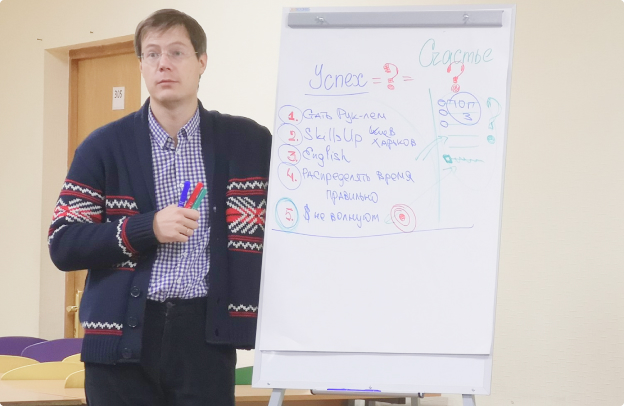 305
Счастье
Успех = ? = ?
1. Стать Рук-лем
2. SkillsUp Киев
Харьков
3. English
4. Распределять время
правильно
5. $ не волнуют
ТОП
3
?